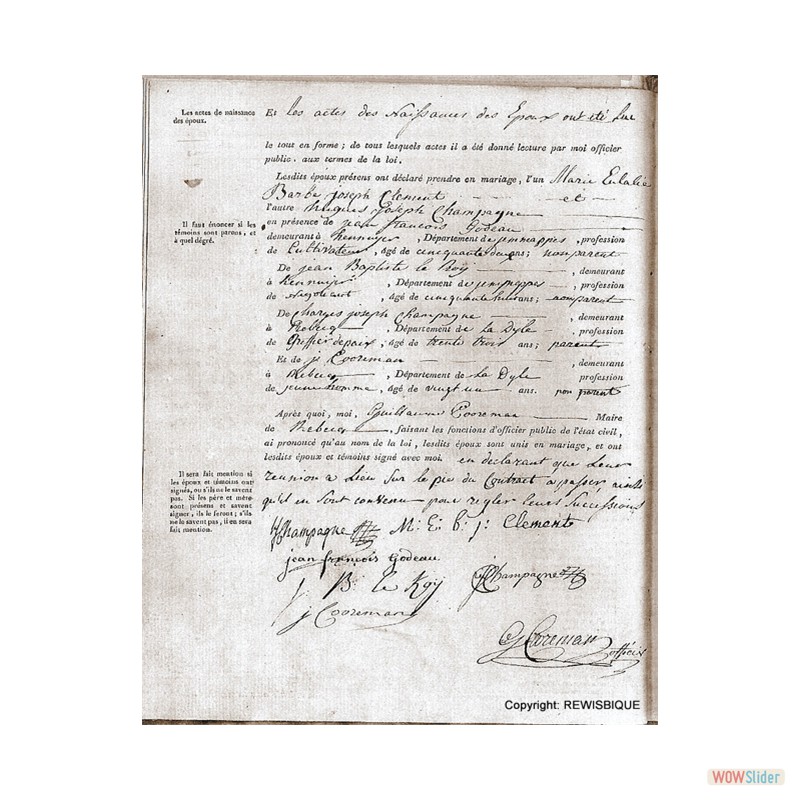 Les actes de naissance
des époux.
Et les actes des Naissances des Epoux ont été Lue
le tout en forme ; de tous lesquels actes il a été donné lecture par moi officier
public. aux termes de la loi.
Lesdits époux présens ont déclaré prendre en mariage, l'un Marie Eulalie
Barbe joseph Clement et
l'autre hugues Joseph Champagne
Il faut énoncer si les
témoins sont parens, et
à quel dégré.
en présence de jean francois Godeau
demeurant à Rennuijer, Département de jemmappes, profession
de Cultivateur, âgé de cinquante deux ans; non parent
De jean Baptiste le Roÿ, demeurant
à Rennuijer, Département de jemmappes, profession
de Negotiant, âgé de cinquante huit ans; non parent
De Charges joseph Champagne, demeurant
à Rebecq, Département de La Dyle profession
de Greffier de paix, âgé de trente trois ans; parent
Et de j Cooreman, demeurant
à Rebecq, Département de La Dyle profession
de jeune homme, âgé de vingt un ans. non parent
Après quoi, moi, Guillaume Cooreman Maire
de Rebecq, faisant les fonctions d'officier public de l'état civil,
ai prononcé qu'au nom de la loi, lesdits époux sont unis en mariage, et ont
lesdits époux et témoins signé avec moi. en declarant que Leur
reunion a Lieu sur le pie du Contract a passer ainsi
qu'il en sont convenu pour regler leurs Successions
Il sera fait mention si
les époux et témoins ont
signés, ou s'ils ne le savent
pas. Si les père et mère
sont présens et savent
signer, ils le feront; s'ils
ne le savent pas, il en sera
fait mention.
hJChampagne M: E: b: j: Clement
jean françois godeau
j B: le Roÿ CJChampagne
j Cooreman
GJCooreman officier
Copyright: REWISBIQUE
WOWSlider